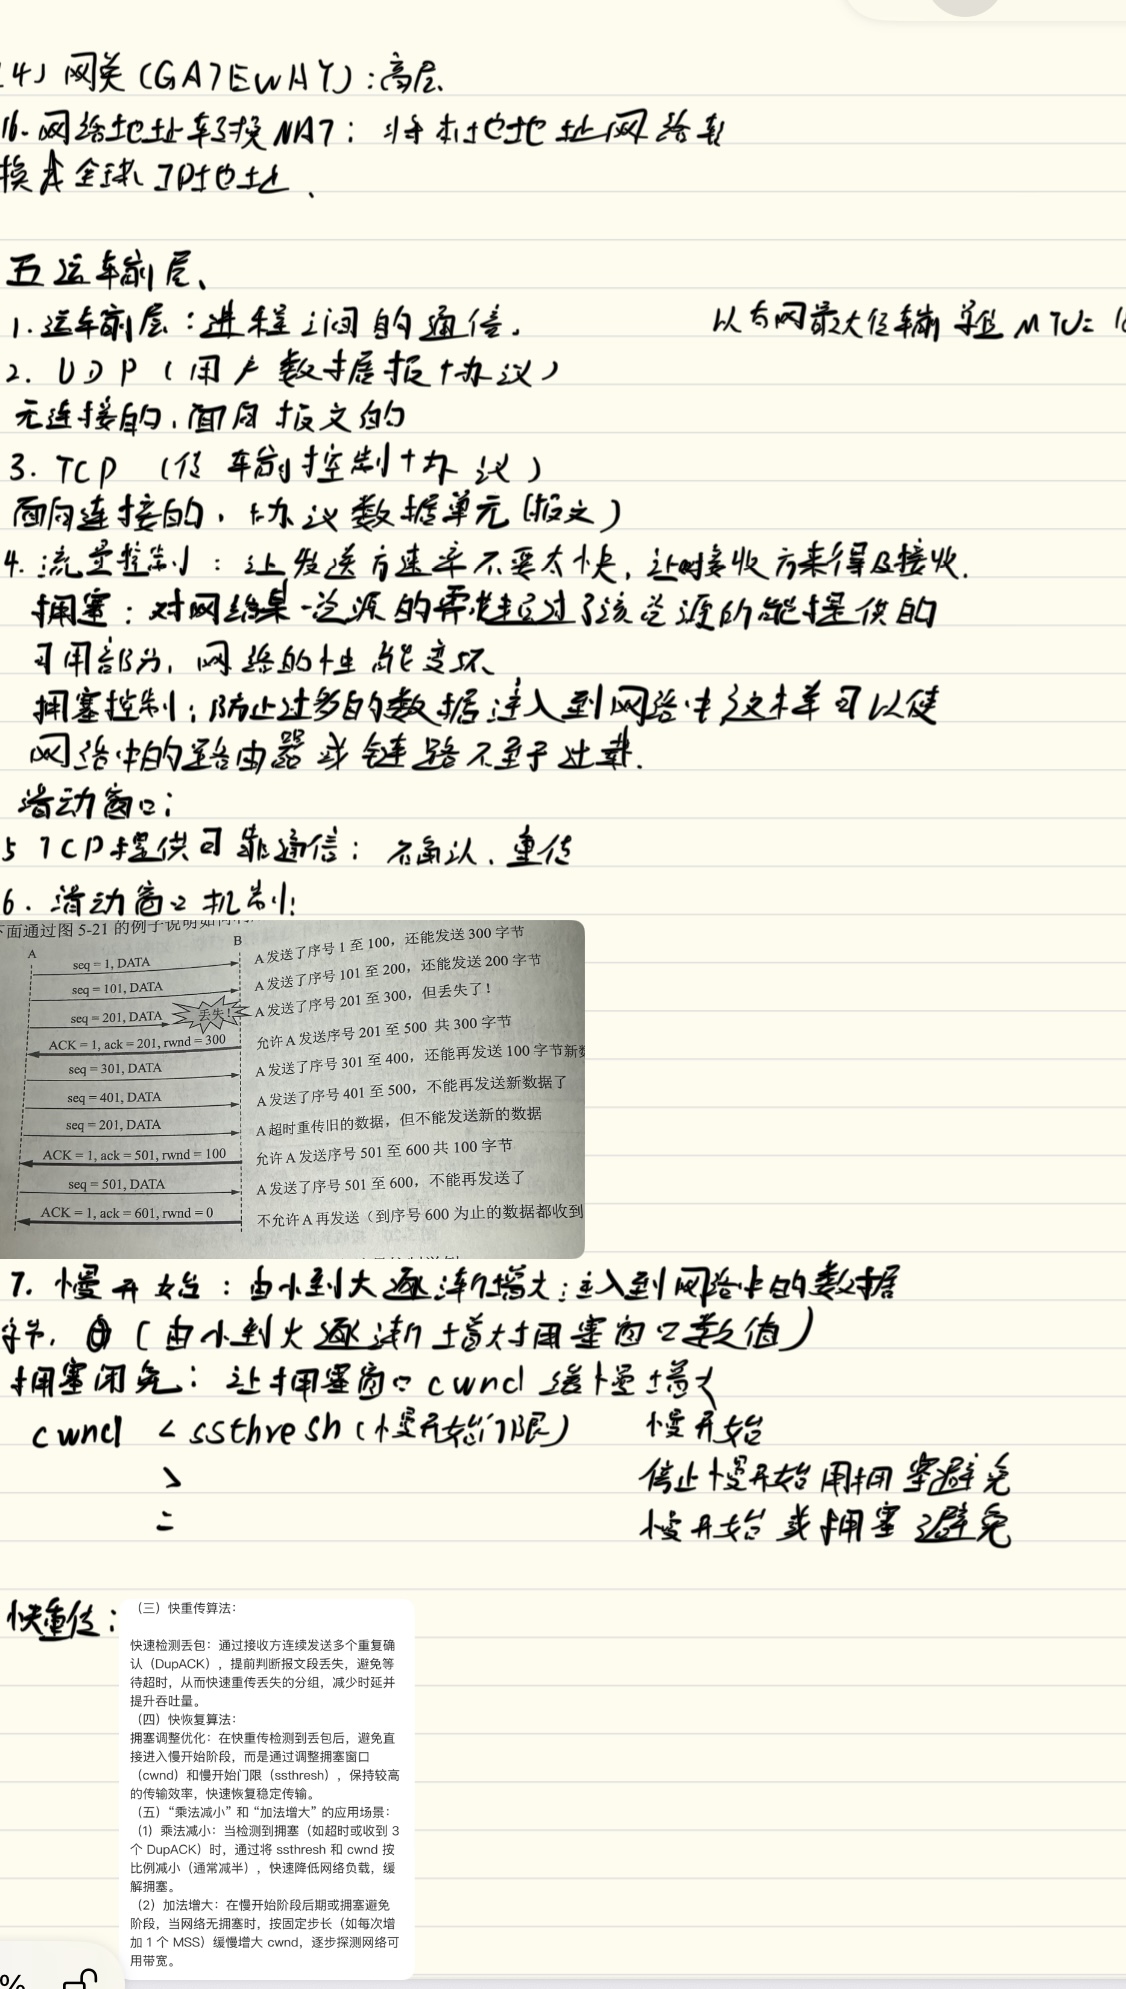 (4) 网关 (GATEWAY):高层.
16. 网络地址转换 NAT: 将本地地址网络转
换成全球 IP地址、
五 运输层、
1. 运输层:进程之间的通信.
以太网最大传输单位 MTU=
2. UDP (用户数据报协议)
无连接的,面向报文的
3. TCP (传输控制协议)
面向连接的,协议数据单元(报文)
4. 流量控制:让发送方速率不要太快,让接收方来得及接收.
拥塞:对网络某一资源的需求超过了该资源所能提供的
可用部分,网络的性能变坏、
拥塞控制:防止过多的数据注入到网络中这样可以使
网络中的路由器或链路不至于过载.
滑动窗口:
5 TCP提供可靠通信: 确认、重传
6. 滑动窗口机制:
下面通过图 5-21 的例子说明如何
A B
seq = 1, DATA A 发送了序号 1 至 100,还能发送 300 字节
seq = 101, DATA A 发送了序号 101 至 200,还能发送 200 字节
seq = 201, DATA 丢失! A 发送了序号 201 至 300,但丢失了!
ACK = 1, ack = 201, rwnd = 300 允许 A 发送序号 201 至 500 共 300 字节
seq = 301, DATA A 发送了序号 301 至 400,还能再发送 100 字节新数
seq = 401, DATA A 发送了序号 401 至 500,不能再发送新数据了
seq = 201, DATA A 超时重传旧的数据,但不能发送新的数据
ACK = 1, ack = 501, rwnd = 100 允许 A 发送序号 501 至 600 共 100 字节
seq = 501, DATA A 发送了序号 501 至 600,不能再发送了
ACK = 1, ack = 601, rwnd = 0 不允许 A 再发送(到序号 600 为止的数据都收到
7. 慢开始:由小到大逐渐增大注入到网络中的数据
字节.(由小到大逐渐增大拥塞窗口数值)
拥塞闭免:让拥塞窗口 cwnd 缓慢增大
cwnd < ssthresh (慢开始门限) 慢开始
> 停止慢开始用拥塞避免
= 慢开始或拥塞避免
快重传:
(三)快重传算法:
快速检测丢包:通过接收方连续发送多个重复确
认(DupACK),提前判断报文段丢失,避免等
待超时,从而快速重传丢失的分组,减少时延并
提升吞吐量。
(四)快恢复算法:
拥塞调整优化:在快重传检测到丢包后,避免直
接进入慢开始阶段,而是通过调整拥塞窗口
(cwnd)和慢开始门限(ssthresh),保持较高
的传输效率,快速恢复稳定传输。
(五)“乘法减小” 和 “加法增大” 的应用场景:
(1)乘法减小:当检测到拥塞(如超时或收到 3
个 DupACK)时,通过将 ssthresh 和 cwnd 按
比例减小(通常减半),快速降低网络负载,缓
解拥塞。
(2)加法增大:在慢开始阶段后期或拥塞避免
阶段,当网络无拥塞时,按固定步长(如每次增
加 1 个 MSS)缓慢增大 cwnd,逐步探测网络可
用带宽。
%